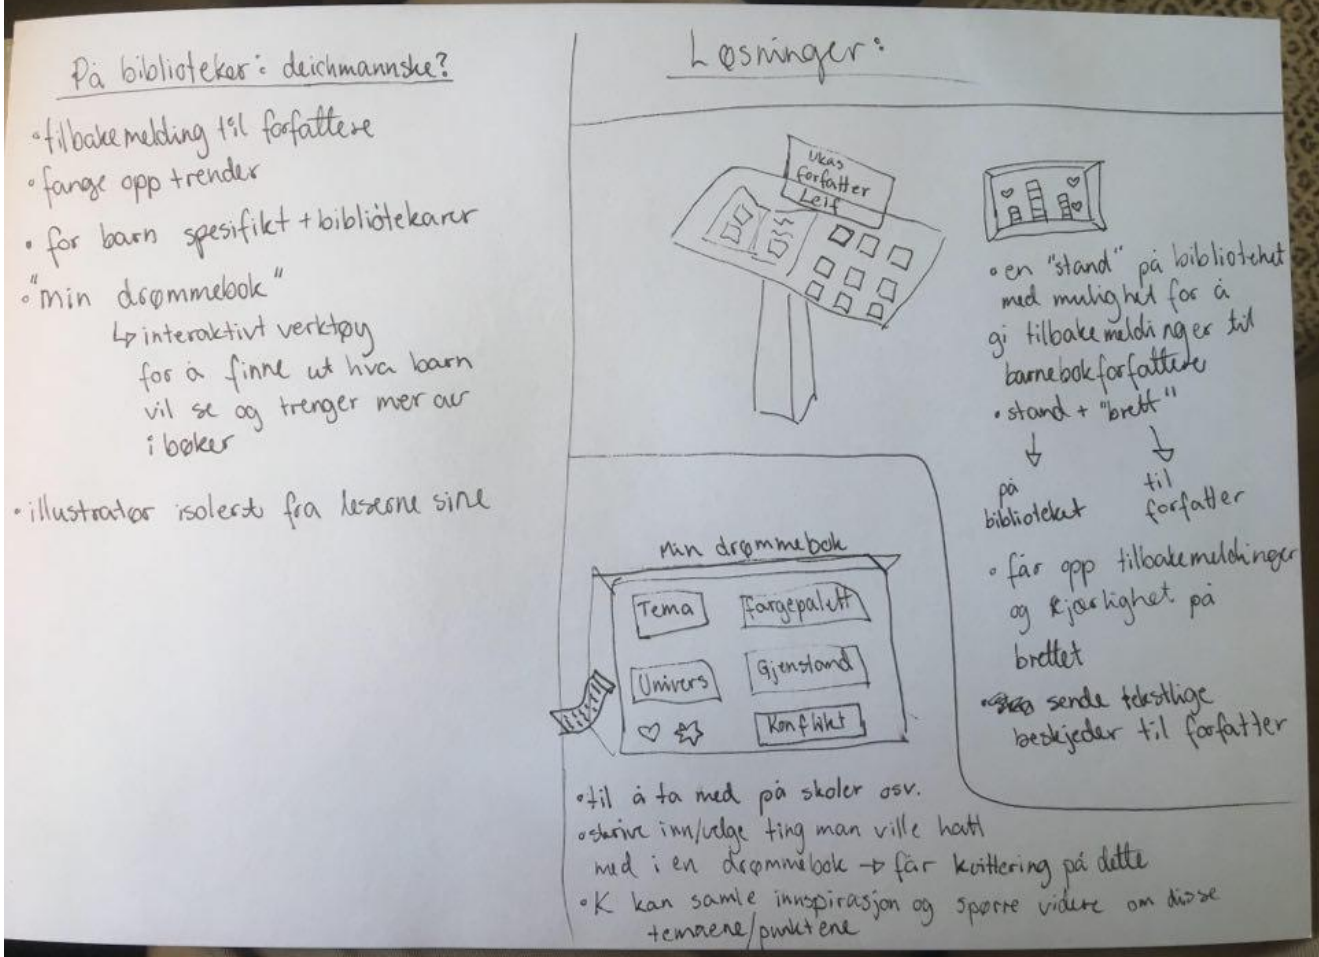 På biblioteker: deichmannske?
• tilbakemelding til forfattere
• fange opp trender
• for barn spesifikt + bibliotekarer
• "min drømmebok"
↳ interaktivt verktøy
for å finne ut hva barn
vil se og trenger mer av
i bøker
• illustratør isolert fra leserne sine
Løsninger:
Ukas
forfatter
Leif
• en "stand" på biblioteket
med mulighet for å
gi tilbakemeldinger til
barnebokforfattere
• stand + "brett"
↓ ↓
på til
biblioteket forfatter
• får opp tilbakemeldinger
og kjærlighet på
brettet
• sende tekstlige
beskjeder til forfatter
Min drømmebok
Tema Fargepalett
Univers Gjenstand
Konflikt
• til å ta med på skoler osv.
• skrive inn/velge ting man ville hatt
med i en drømmebok → får kvittering på dette
• K kan samle innspirasjon og spørre videre om disse
temaene/punktene